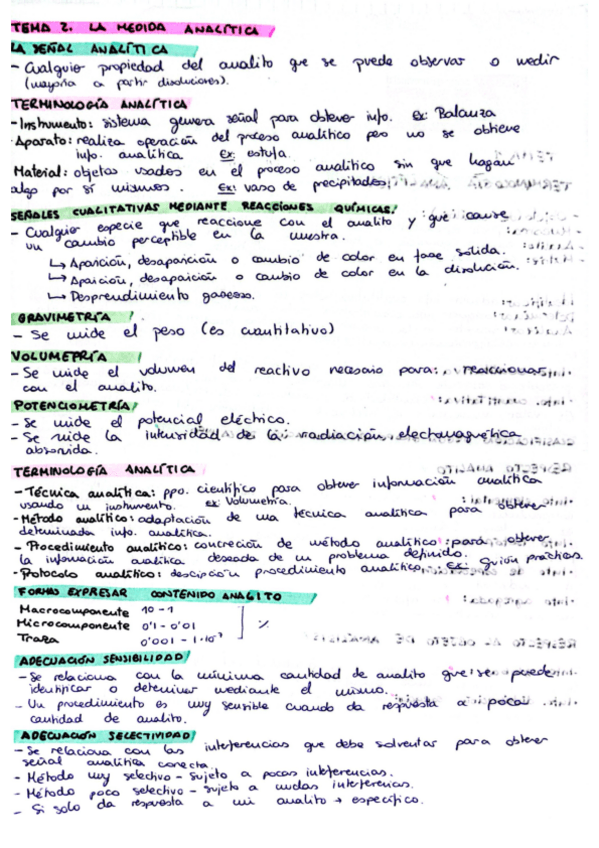 TEMA 2. LA MEDIDA ANALÍTICA
LA SEÑAL ANALÍTICA
- Cualquier propiedad del analito que se puede observar o medir
(mayoría a partir disoluciones).
TERMINOLOGÍA ANALÍTICA
- Instrumento: sistema genera señal para obtener info. ex: Balanza
Aparato: realiza operación del proceso analítico pero no se obtiene
info. analítica Ex: estufa.
Material: objetos usados en el proceso analítico sin que hagan
algo por sí mismos. Ex: vaso de precipitados
SEÑALES CUALITATIVAS MEDIANTE REACCIONES QUÍMICAS
- Cualquier especie que reaccione con el analito y que cause
un cambio perceptible en la muestra.
↳ Aparición, desaparición o cambio de color en fase sólida.
↳ Aparición, desaparición o cambio de color en la disolución.
↳ Desprendimiento gaseoso.
GRAVIMETRÍA
- Se mide el peso (es cuantitativo)
VOLUMETRÍA
- Se mide el volumen del reactivo necesario para reaccionar
con el analito.
POTENCIOMETRÍA
- Se mide el potencial eléctrico.
- Se mide la intensidad de la radiación electromagnética
absorvida.
TERMINOLOGÍA ANALÍTICA
- Técnica analítica: ppo. científico para obtener información analítica
usando un instrumento. ex: Volumetría.
- Método analítico: adaptación de una técnica analítica para obtener
determinada info. analítica.
- Procedimiento analítico: concreción de método analítico para obtener
la información analítica deseada de un problema definido.
- Protocolo analítico: descipción procedimiento analítico. ex: guión prácticas
FORMAS EXPRESAR CONTENIDO ANALITO
Macrocomponente 10 - 1
Microcomponente 0'1 - 0'01 %
Traza 0'001 - 1·10
ADECUACIÓN SENSIBILIDAD
- Se relaciona con la mínima cantidad de analito que se pueden
identificar o determinar mediante el mismo.
- Un procedimiento es muy sensible cuando da respuesta a poca
cantidad de analito.
ADECUACIÓN SELECTIVIDAD
- Se relaciona con las inteferencias que debe solventar para obtener
señal analítica correcta.
- Método muy selectivo - Sujeto a pocas inteferencias.
- Método poco selectivo - sujeto a muchas inteferencias.
- Si solo da respuesta a mi analito → específico.